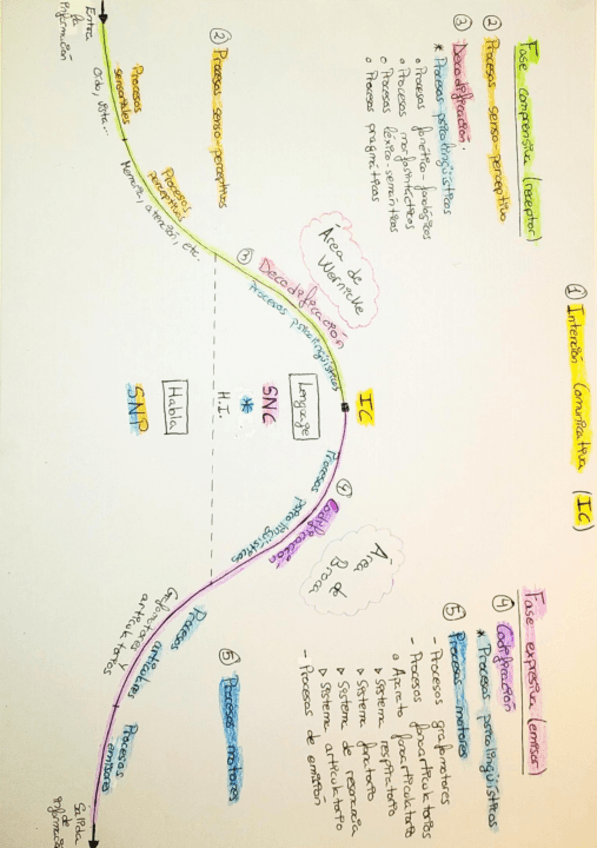 ① Intención Comunicativa (IC)
Fase comprensiva (receptor)
② Procesos senso-perceptivo
③ Decodificación.
* Procesos psicolingüísticos
o Procesos fonético-fonológicos
o Procesos morfosintácticos
o Procesos léxico-semánticos
o Procesos pragmáticos
Fase expresiva (emisor)
④ Codificación
* Procesos psicolingüísticos
⑤ Procesos motores
- Procesos grafomotores
- Procesos fonoarticulatorios
o Aparato fonoarticulatorio
▷ Sistema respiratorio
▷ Sistema fonatorio
▷ Sistema de resonancia
▷ Sistema articulatorio
- Procesos de emisión
② Procesos senso-perceptivos
Entra
la
información
Procesos
sensoriales
Oído, vista...
Procesos
perceptivos
Memoria, atención, etc.
③ Decodificación
Procesos psicolingüísticos
Área de
Wernicke
IC
Lenguaje
SNC
*
H.I.
Habla
SNP
④ Codificación
Procesos
psicolingüísticos
Área
de
Broca
⑤ Procesos motores
Procesos
Grafomotores y
articulatorios
Procesos
emisores
Salida
de
información